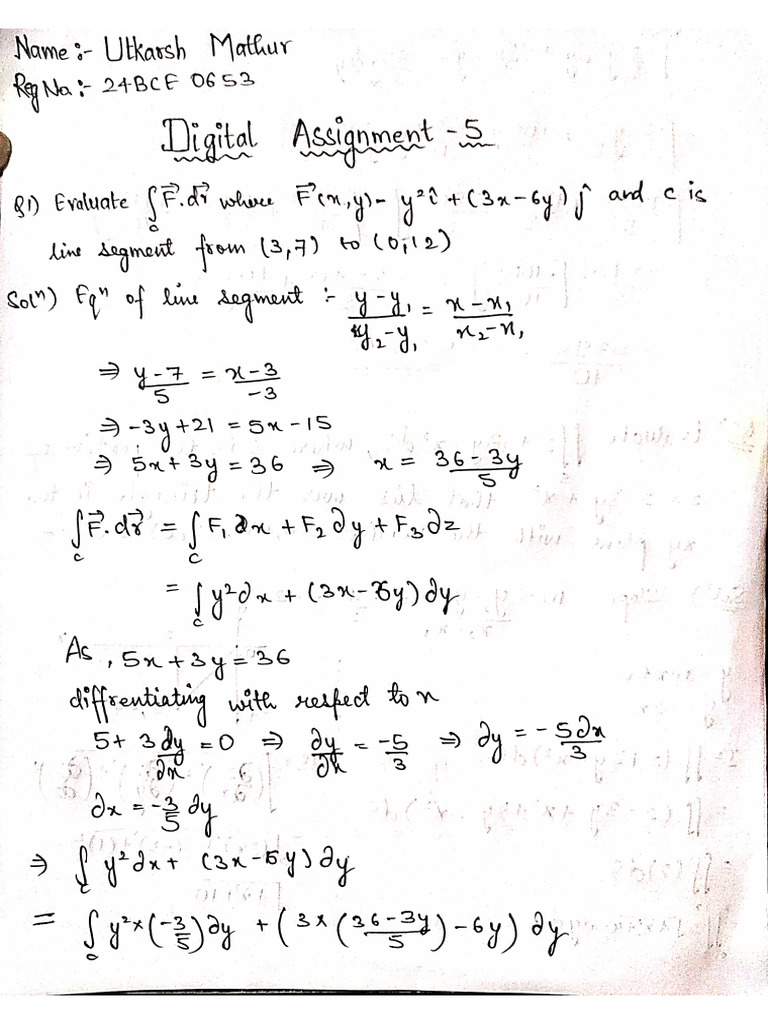 Name:- Utkarsh Mathur
Reg No:- 24BCE 0653
Digital Assignment - 5
Q1) Evaluate ∫_C F⃗.dr⃗ where F⃗(x,y)- y²î + (3x-6y) ĵ and c is
line segment from (3,7) to (0,12)
Solⁿ) Eqⁿ of line segment :- (y-y₁)/(y₂-y₁) = (x-x₁)/(x₂-x₁)
⇒ (y-7)/5 = (x-3)/-3
⇒ -3y+21 = 5x-15
⇒ 5x+3y = 36 ⇒ x = (36-3y)/5
∫_C F⃗.dr⃗ = ∫_C F₁∂x + F₂∂y + F₃∂z
= ∫_C y²∂x + (3x-6y)∂y
As, 5x+3y=36
diffrentiating with respect to x
5+ 3∂y/∂x = 0 ⇒ ∂y/∂x = -5/3 ⇒ ∂y = -5∂x/3
∂x = -3/5 ∂y
⇒ ∫_C y²∂x + (3x-6y)∂y
= ∫_C y²×(-3/5)∂y + (3×(36-3y)/5)-6y) ∂y